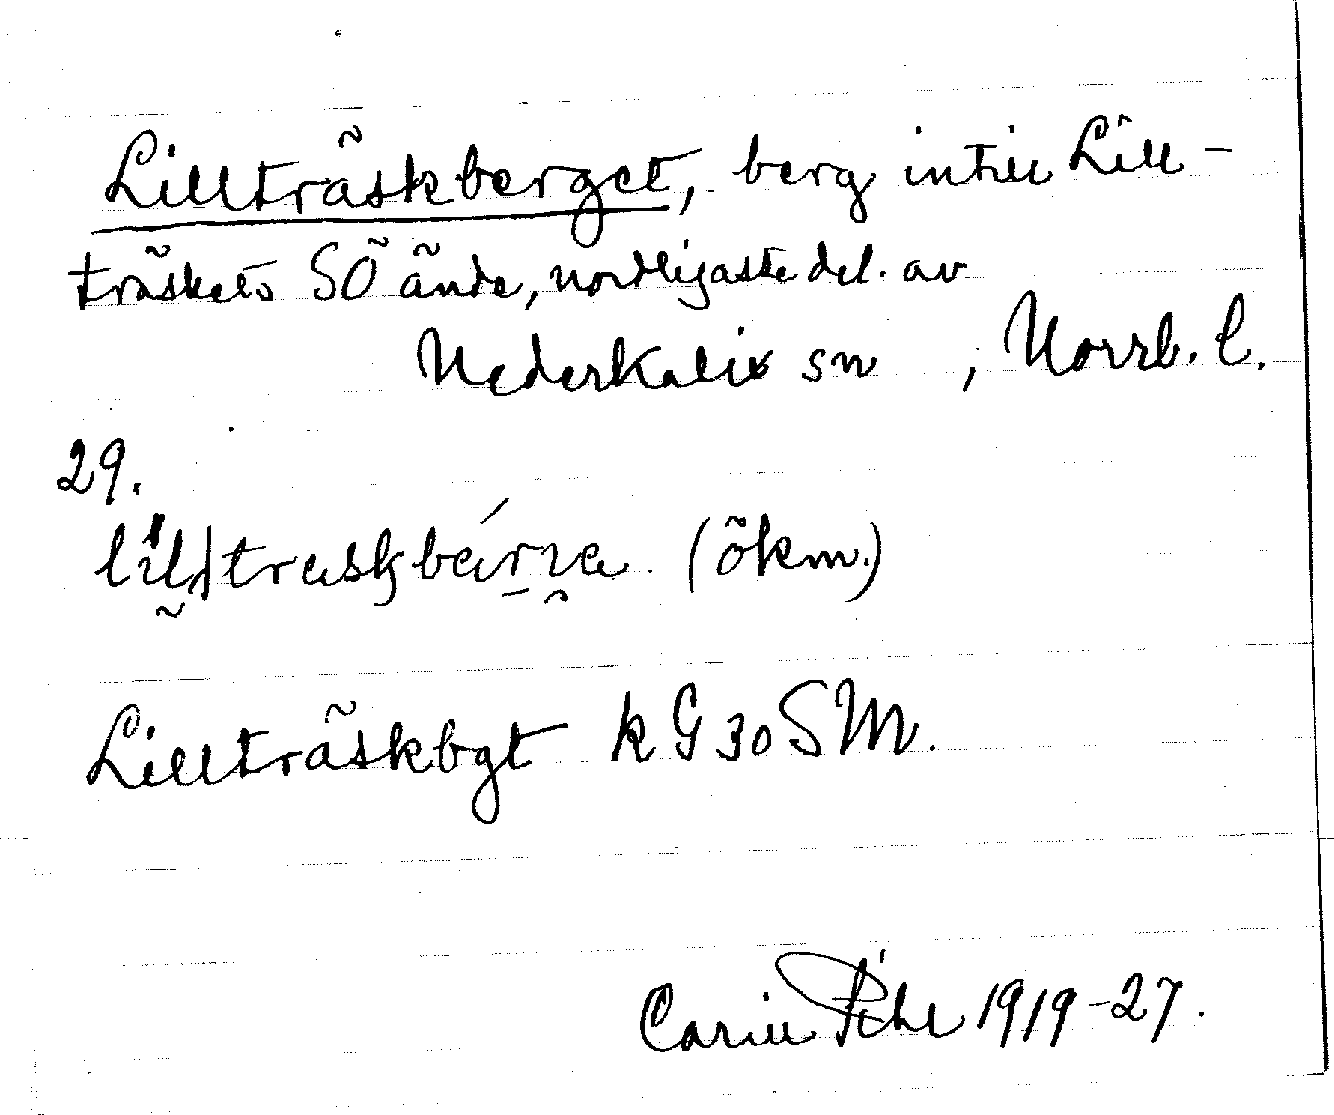 Lillträskberget, berg intill Lill-
träskets SÖ ände, nordligaste del. av
Nederkalix sn , Norrb. l.
29.
(ökm.)
Lillträskbgt k G 30 SM.
Carin Pihl 1919-27.